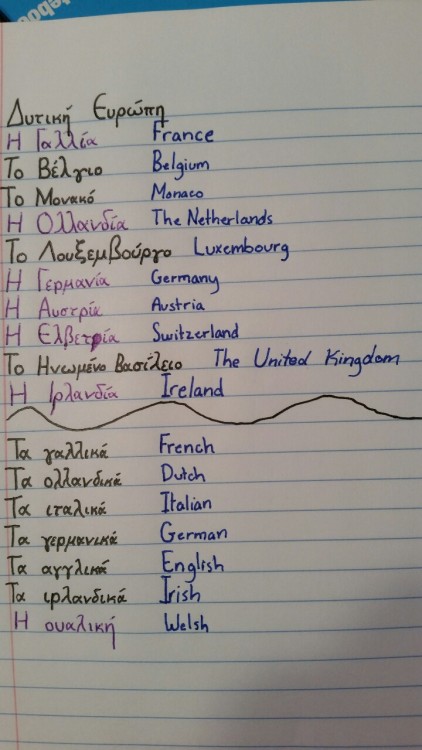 Δυτική Ευρώπη
Η Γαλλία France
Το Βέλγιο Belgium
Το Μονακό Monaco
Η Ολλανδία The Netherlands
Το Λουξεμβούργο Luxembourg
Η Γερμανία Germany
Η Αυστρία Austria
Η Ελβετρία Switzerland
Το Ηνωμένο Βασίλειο The United Kingdom
Η Ιρλανδία Ireland
Τα γαλλικά French
Τα ολλανδικά Dutch
Τα ιταλικά Italian
Τα γερμανικά German
Τα αγγλικά English
Τα ιρλανδικά Irish
Η ουαλική Welsh